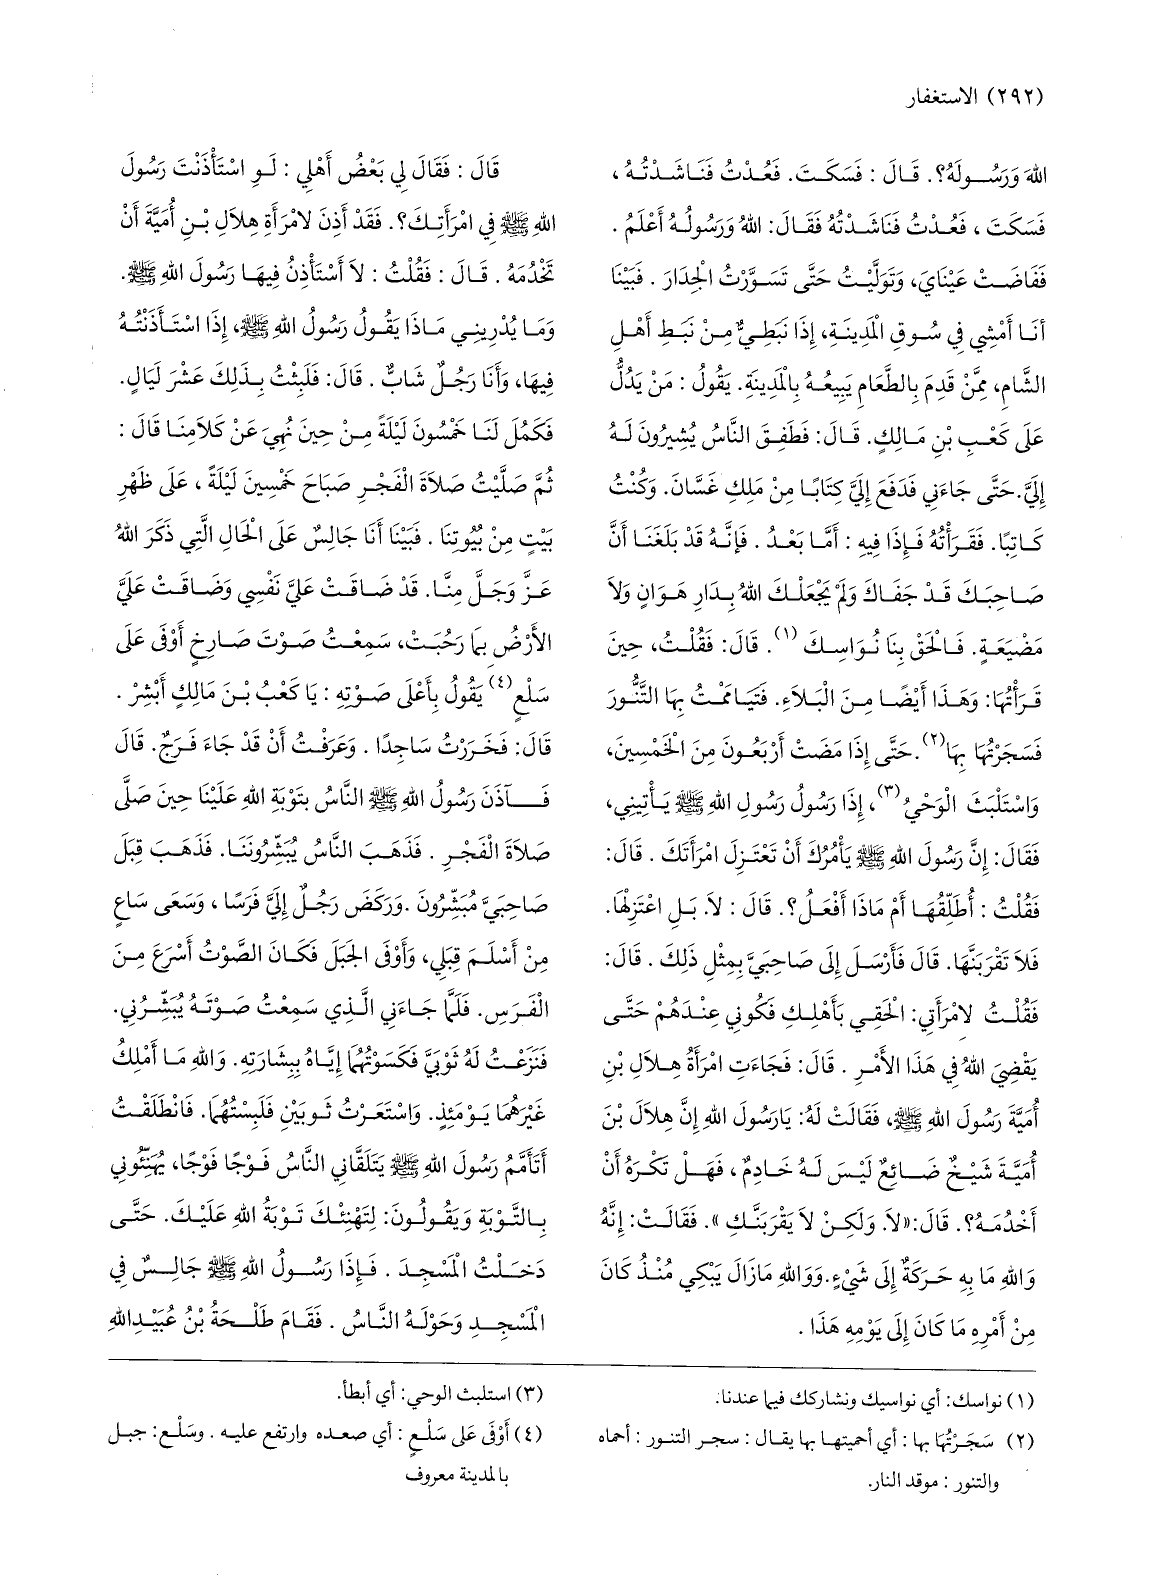 (٢٩٢) الاستغفار
اللهَ وَرَسُولَهُ؟. قَالَ : فَسَكَتَ. فَعُدْتُ فَنَاشَدْتُهُ ،
فَسَكَتَ ، فَعُدْتُ فَنَاشَدْتُهُ فَقَالَ: اللهُ وَرَسُولُهُ أَعْلَمُ .
فَفَاضَتْ عَيْنَايَ، وَتَوَلَّيْتُ حَتَّى تَسَوَّرْتُ الْجِدَارَ . فَبَيْنَا
أَنَا أَمْشِي فِي سُوقِ الْمَدِينَةِ، إِذَا نَبَطِيٌّ مِنْ نَبَطِ أَهْلِ
الشَّامِ، مِمَّنْ قَدِمَ بِالطَّعَامِ يَبِيعُهُ بِالْمَدِينَةِ. يَقُولُ : مَنْ يَدُلُّ
عَلَى كَعْبِ بْنِ مَالِكٍ. قَالَ: فَطَفِقَ النَّاسُ يُشِيرُونَ لَهُ
إِلَيَّ. حَتَّى جَاءَنِي فَدَفَعَ إِلَيَّ كِتَابًا مِنْ مَلِكِ غَسَّانَ. وَكُنْتُ
كَاتِبًا. فَقَرَأْتُهُ فَإِذَا فِيهِ : أَمَّا بَعْدُ . فَإِنَّهُ قَدْ بَلَغَنَا أَنَّ
صَاحِبَكَ قَدْ جَفَاكَ وَلَمْ يَجْعَلْكَ اللهُ بِدَارِ هَوَانٍ وَلاَ
مَضْيَعَةٍ. فَالْحَقْ بِنَا نُوَاسِكَ (١). قَالَ: فَقُلْتُ، حِينَ
قَرَأْتُهَا: وَهَذَا أَيْضًا مِنَ الْبَلاَءِ. فَتَيَامَمْتُ بِهَا التَّنُّورَ
فَسَجَرْتُهَا بِهَا(٢). حَتَّى إِذَا مَضَتْ أَرْبَعُونَ مِنَ الْخَمْسِينَ،
وَاسْتَلْبَثَ الْوَحْيُ(٣)، إِذَا رَسُولُ رَسُولِ اللهِ ﷺ يَأْتِينِي،
فَقَالَ: إِنَّ رَسُولَ اللهِ ﷺ يَأْمُرُكَ أَنْ تَعْتَزِلَ امْرَأَتَكَ . قَالَ:
فَقُلْتُ : أُطَلِّقُهَا أَمْ مَاذَا أَفْعَلُ؟. قَالَ : لاَ. بَلِ اعْتَزِلْهَا.
فَلاَ تَقْرَبَنَّهَا. قَالَ فَأَرْسَلَ إِلَى صَاحِبَيَّ بِمِثْلِ ذَلِكَ . قَالَ:
فَقُلْتُ لامْرَأَتِي: الْحَقِي بِأَهْلِكِ فَكُونِي عِنْدَهُمْ حَتَّى
يَقْضِيَ اللهُ فِي هَذَا الأَمْرِ . قَالَ: فَجَاءَتِ امْرَأَةُ هِلاَلِ بْنِ
أُمَيَّةَ رَسُولَ اللهِ ﷺ، فَقَالَتْ لَهُ: يَارَسُولَ اللهِ إِنَّ هِلاَلَ بْنَ
أُمَيَّةَ شَيْخٌ ضَائِعٌ لَيْسَ لَهُ خَادِمٌ ، فَهَلْ تَكْرَهُ أَنْ
أَخْدُمَهُ؟. قَالَ:«لاَ. وَلَكِنْ لاَ يَقْرَبَنَّكِ ». فَقَالَتْ: إِنَّهُ
وَاللهِ مَا بِهِ حَرَكَةٌ إِلَى شَيْءٍ. وَوَاللهِ مَازَالَ يَبْكِي مُنْذُ كَانَ
مِنْ أَمْرِهِ مَا كَانَ إِلَى يَوْمِهِ هَذَا .
قَالَ : فَقَالَ لِي بَعْضُ أَهْلِي : لَوِ اسْتَأْذَنْتَ رَسُولَ
اللهِ ﷺ فِي امْرَأَتِكَ؟. فَقَدْ أَذِنَ لامْرَأَةِ هِلاَلِ بْنِ أُمَيَّةَ أَنْ
تَخْدُمَهُ . قَالَ : فَقُلْتُ : لاَ أَسْتَأْذِنُ فِيهَا رَسُولَ اللهِ ﷺ.
وَمَا يُدْرِينِي مَاذَا يَقُولُ رَسُولُ اللهِ ﷺ، إِذَا اسْتَأْذَنْتُهُ
فِيهَا، وَأَنَا رَجُلٌ شَابٌّ . قَالَ: فَلَبِثْتُ بِذَلِكَ عَشْرَ لَيَالٍ.
فَكَمُلَ لَنَا خَمْسُونَ لَيْلَةً مِنْ حِينَ نُهِيَ عَنْ كَلاَمِنَا قَالَ :
ثُمَّ صَلَّيْتُ صَلاَةَ الْفَجْرِ صَبَاحَ خَمْسِينَ لَيْلَةً ، عَلَى ظَهْرِ
بَيْتٍ مِنْ بُيُوتِنَا . فَبَيْنَا أَنَا جَالِسٌ عَلَى الْحَالِ الَّتِي ذَكَرَ اللهُ
عَزَّ وَجَلَّ مِنَّا. قَدْ ضَاقَتْ عَلَيَّ نَفْسِي وَضَاقَتْ عَلَيَّ
الأَرْضُ بِمَا رَحُبَتْ، سَمِعْتُ صَوْتَ صَارِخٍ أَوْفَى عَلَى
سَلْعٍ(٤) يَقُولُ بِأَعْلَى صَوْتِهِ : يَا كَعْبُ بْنَ مَالِكٍ أَبْشِرْ .
قَالَ: فَخَرَرْتُ سَاجِدًا . وَعَرَفْتُ أَنْ قَدْ جَاءَ فَرَجٌ. قَالَ
فَآذَنَ رَسُولُ اللهِ ﷺ النَّاسُ بِتَوْبَةِ اللهِ عَلَيْنَا حِينَ صَلَّى
صَلاَةَ الْفَجْرِ . فَذَهَبَ النَّاسُ يُبَشِّرُونَنَا. فَذَهَبَ قِبَلَ
صَاحِبَيَّ مُبَشِّرُونَ .وَرَكَضَ رَجُلٌ إِلَيَّ فَرَسًا ، وَسَعَى سَاعٍ
مِنْ أَسْلَمَ قِبَلِي، وَأَوْفَى الْجَبَلَ فَكَانَ الصَّوْتُ أَسْرَعَ مِنَ
الْفَرَسِ. فَلَمَّا جَاءَنِي الَّذِي سَمِعْتُ صَوْتَهُ يُبَشِّرُنِي.
فَنَزَعْتُ لَهُ ثَوْبَيَّ فَكَسَوْتُهُمَا إِيَّاهُ بِبِشَارَتِهِ. وَاللهِ مَا أَمْلِكُ
غَيْرَهُمَا يَوْمَئِذٍ. وَاسْتَعَرْتُ ثَوبَيْنِ فَلَبِسْتُهُمَا. فَانْطَلَقْتُ
أَتَأَمَّمُ رَسُولَ اللهِ ﷺ يَتَلَقَّانِي النَّاسُ فَوْجًا فَوْجًا، يُهَنِّئُونِي
بِالتَّوْبَةِ وَيَقُولُونَ: لِتَهْنِئْكَ تَوْبَةُ اللهِ عَلَيْكَ. حَتَّى
دَخَلْتُ الْمَسْجِدَ . فَإِذَا رَسُولُ اللهِ ﷺ جَالِسٌ فِي
الْمَسْجِدِ وَحَوْلَهُ النَّاسُ . فَقَامَ طَلْحَةُ بْنُ عُبَيْدِاللهِ
(١) نواسك: أي نواسيك ونشاركك فيما عندنا.
(٢) سَجَرْتُهَا بها : أي أحميتها بها يقال : سجر التنور : أحماه
والتنور : موقد النار.
(٣) استلبث الوحي: أي أبطأ.
(٤) أَوْفَى عَلَى سَلْعٍ : أي صعده وارتفع عليه . وسَلْع: جبل
بالمدينة معروف